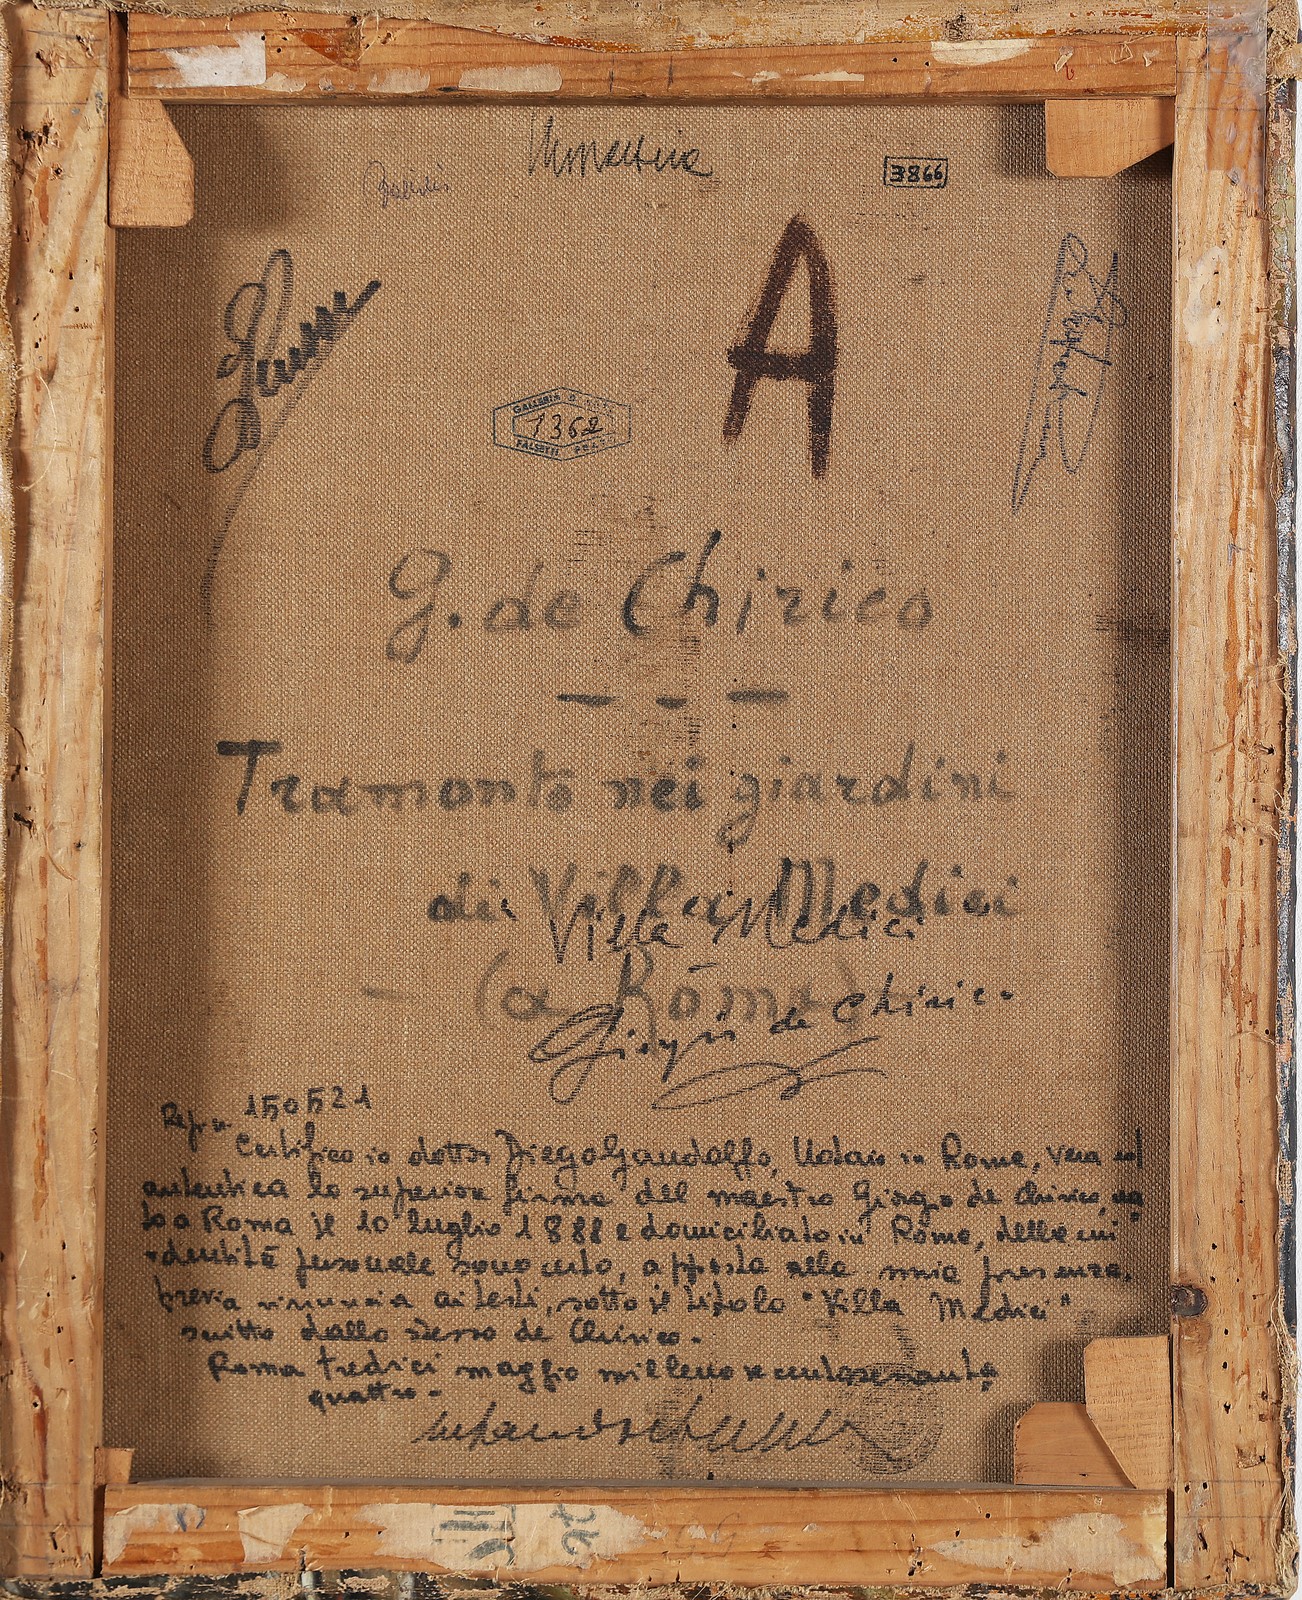 3866
A
GALLERIA
1362
FALSETTI
G. de Chirico
Tramonto nei giardini
di Villa Medici
Villa Medici
(a Roma)
Giorgio de Chirico
150521
Certifico io dottor Diego Gandolfo, Notaio in Roma, vera ed
autentica la superiore firma del maestro Giorgio de Chirico, na
to a Roma il 10 luglio 1888 e domiciliato in Roma, della cui
identità personale sono certo, apposta alla mia presenza,
previa rinuncia ai testi, sotto il titolo "Villa Medici"
scritto dallo stesso de Chirico.
Roma tredici maggio millenovecentosessanta
quattro.